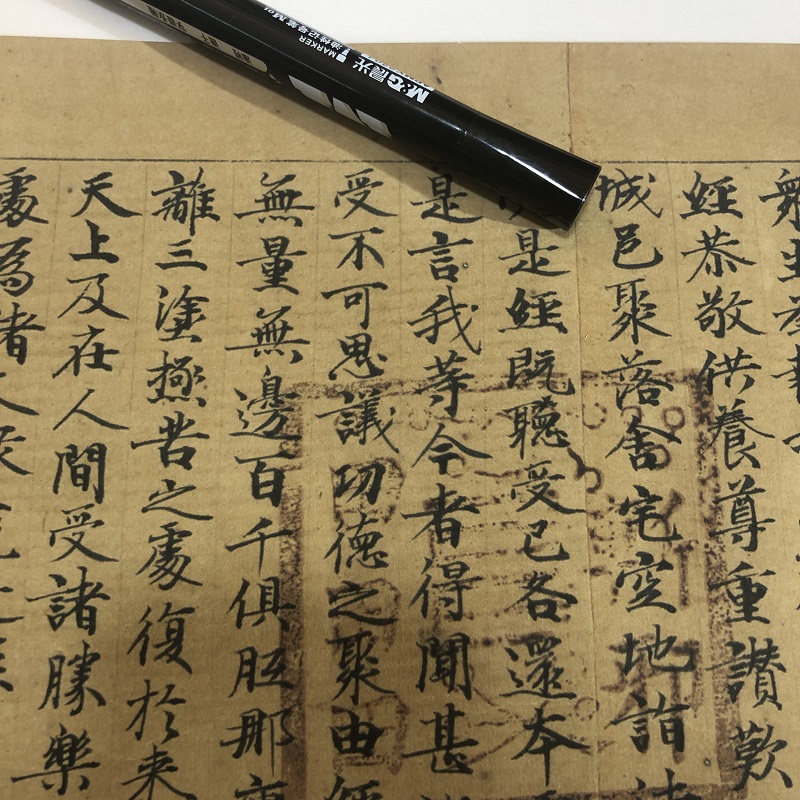 M&G晨光
MARKER
油性记号笔
經恭敬供養尊重讃歎
城邑聚落舍宅空地詣
是經既聽受已各還本
是言我等今者得聞甚
受不可思議功德之聚由經
無量無邊百千俱胝那
離三塗極苦之處復於来
天上及在人間受諸勝樂
處為諸人